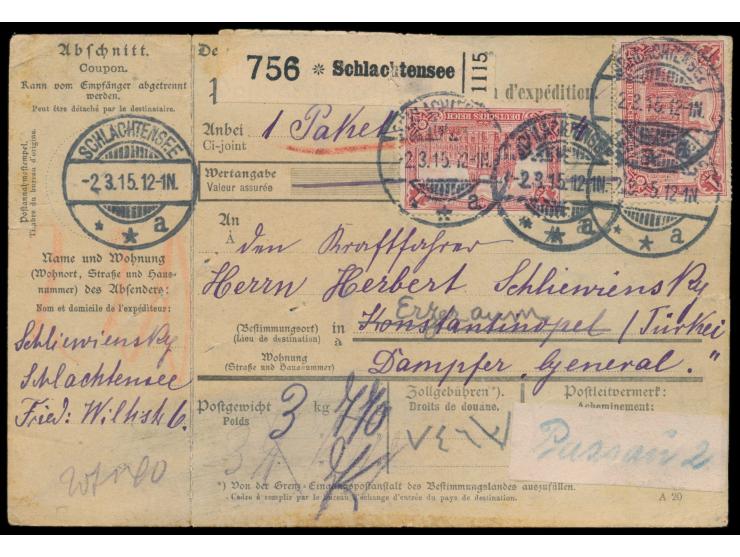 Abschnitt.
Coupon.
Kann vom Empfänger abgetrennt
werden.
Peut être détaché par le destinataire.
Postannahmestempel.
Timbre du bureau d'origine.
SCHLACHTENSEE
-2.3.15.12-1N.
* * a
Name und Wohnung
(Wohnort, Straße und Haus-
nummer) des Absenders:
Nom et domicile de l'expéditeur:
Schliewiensky
Schlachtensee
Fried: Wilhstr 6.
756 * Schlachtensee
1115
n d'expédition.
Anbei 1 Paket
Ci-joint
DEUTSCHES REICH
SCHLACHTENSEE
-2.3.15.12-1N.
* * a
-2.3.15.12-1N.
SCHLACHTENSEE
-2.3.15.12-1N.
a
Wertangabe
Valeur assurée
An
À
den Kraftfahrer
Herrn Herbert Schliewiensky
Erzeraum
(Bestimmungsort) in Konstantinopel / Türkei
(Lieu de destination) à
Wohnung
(Straße und Hausnummer)
Dampfer „General."
Postgewicht 3 kg 770
Poids
Zollgebühren*).
Droits de douane.
Postleitvermerk:
Acheminement:
٧٤٦٧
Passau 2
*) Von der Grenz-Eingangspostanstalt des Bestimmungslandes auszufüllen.
Cadre à remplir par le bureau d'échange d'entrée du pays de destination.
A 20